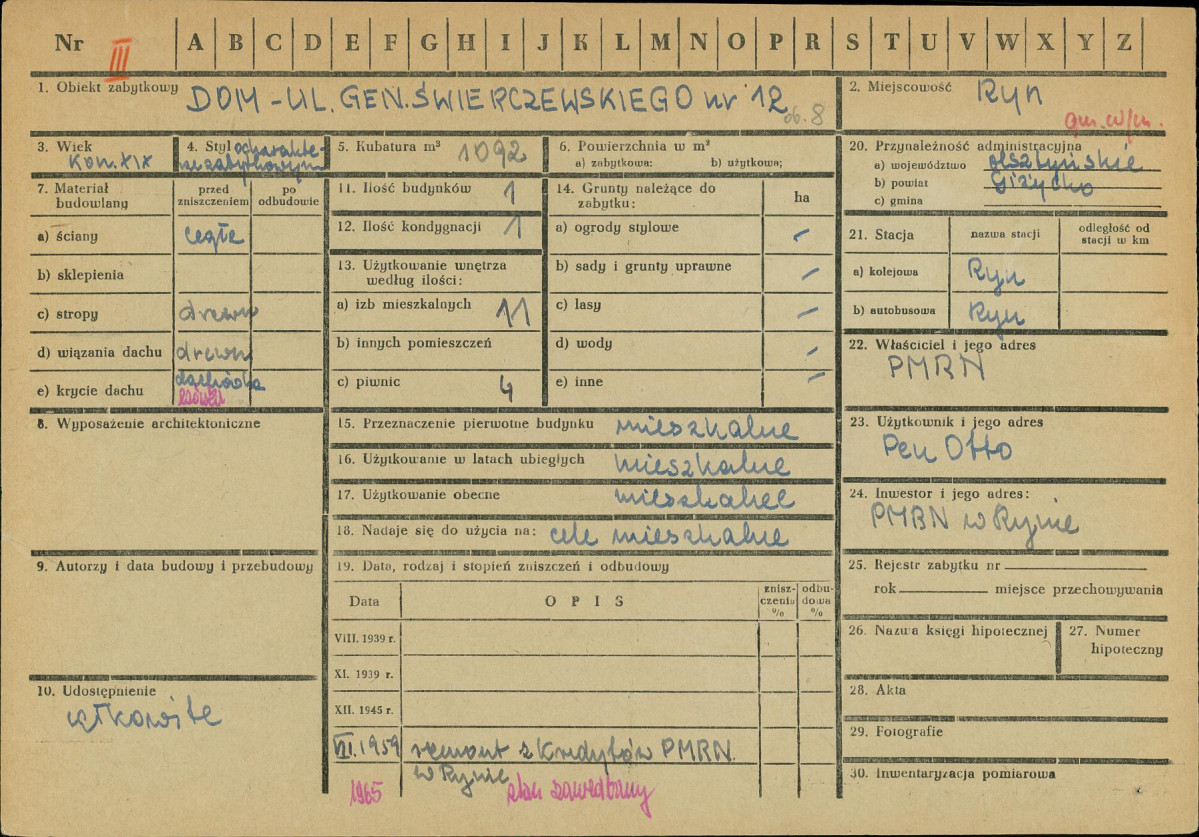 Nr III A B C D E F G H I J K L M N O P R S T U V W X Y Z
1. Obiekt zabytkowy DOM - UL. GEN. ŚWIERCZEWSKIEGO nr 12
ob. 8
2. Miejscowość Ryn
gm. w/m.
3. Wiek
Kon. XIX
4. Styl o charakte-
rze zabytkowym
5. Kubatura m³ 1092
6. Powierzchnia w m²
a) zabytkowa: b) użytkowa;
7. Materiał
budowlany
przed
zniszczeniem
po
odbudowie
a) ściany cegła
b) sklepienia
c) stropy drewn
d) wiązania dachu drewn
e) krycie dachu dachówka
8. Wyposażenie architektoniczne
9. Autorzy i data budowy i przebudowy
10. Udostępnienie
całkowite
11. Ilość budynków 1
12. Ilość kondygnacji 1
13. Użytkowanie wnętrza
według ilości:
a) izb mieszkalnych 11
b) innych pomieszczeń
c) piwnic 4
14. Grunty należące do
zabytku:
ha
a) ogrody stylowe –
b) sady i grunty uprawne –
c) lasy –
d) wody –
e) inne –
15. Przeznaczenie pierwotne budynku mieszkalne
16. Użytkowanie w latach ubiegłych mieszkalne
17. Użytkowanie obecne mieszkalne
18. Nadaje się do użycia na: cele mieszkalne
19. Data, rodzaj i stopień zniszczeń i odbudowy
Data
OPIS
znisz-
czenia
%
odbu-
dowa
%
VIII. 1939 r.
XI. 1939 r.
XII. 1945 r.
VII. 1959 remont z kredytów PMRN
w Rynie
1965 stan zaniedbany
20. Przynależność administracyjna
a) województwo olsztyńskie
b) powiat Giżycko
c) gmina
21. Stacja
nazwa stacji
odległość od
stacji w km
a) kolejowa Ryn
b) autobusowa Ryn
22. Właściciel i jego adres
PMRN
23. Użytkownik i jego adres
Pen Otto
24. Inwestor i jego adres:
PMRN w Rynie
25. Rejestr zabytku nr
rok miejsce przechowywania
26. Nazwa księgi hipotecznej
27. Numer
hipoteczny
28. Akta
29. Fotografie
30. Inwentaryzacja pomiarowa